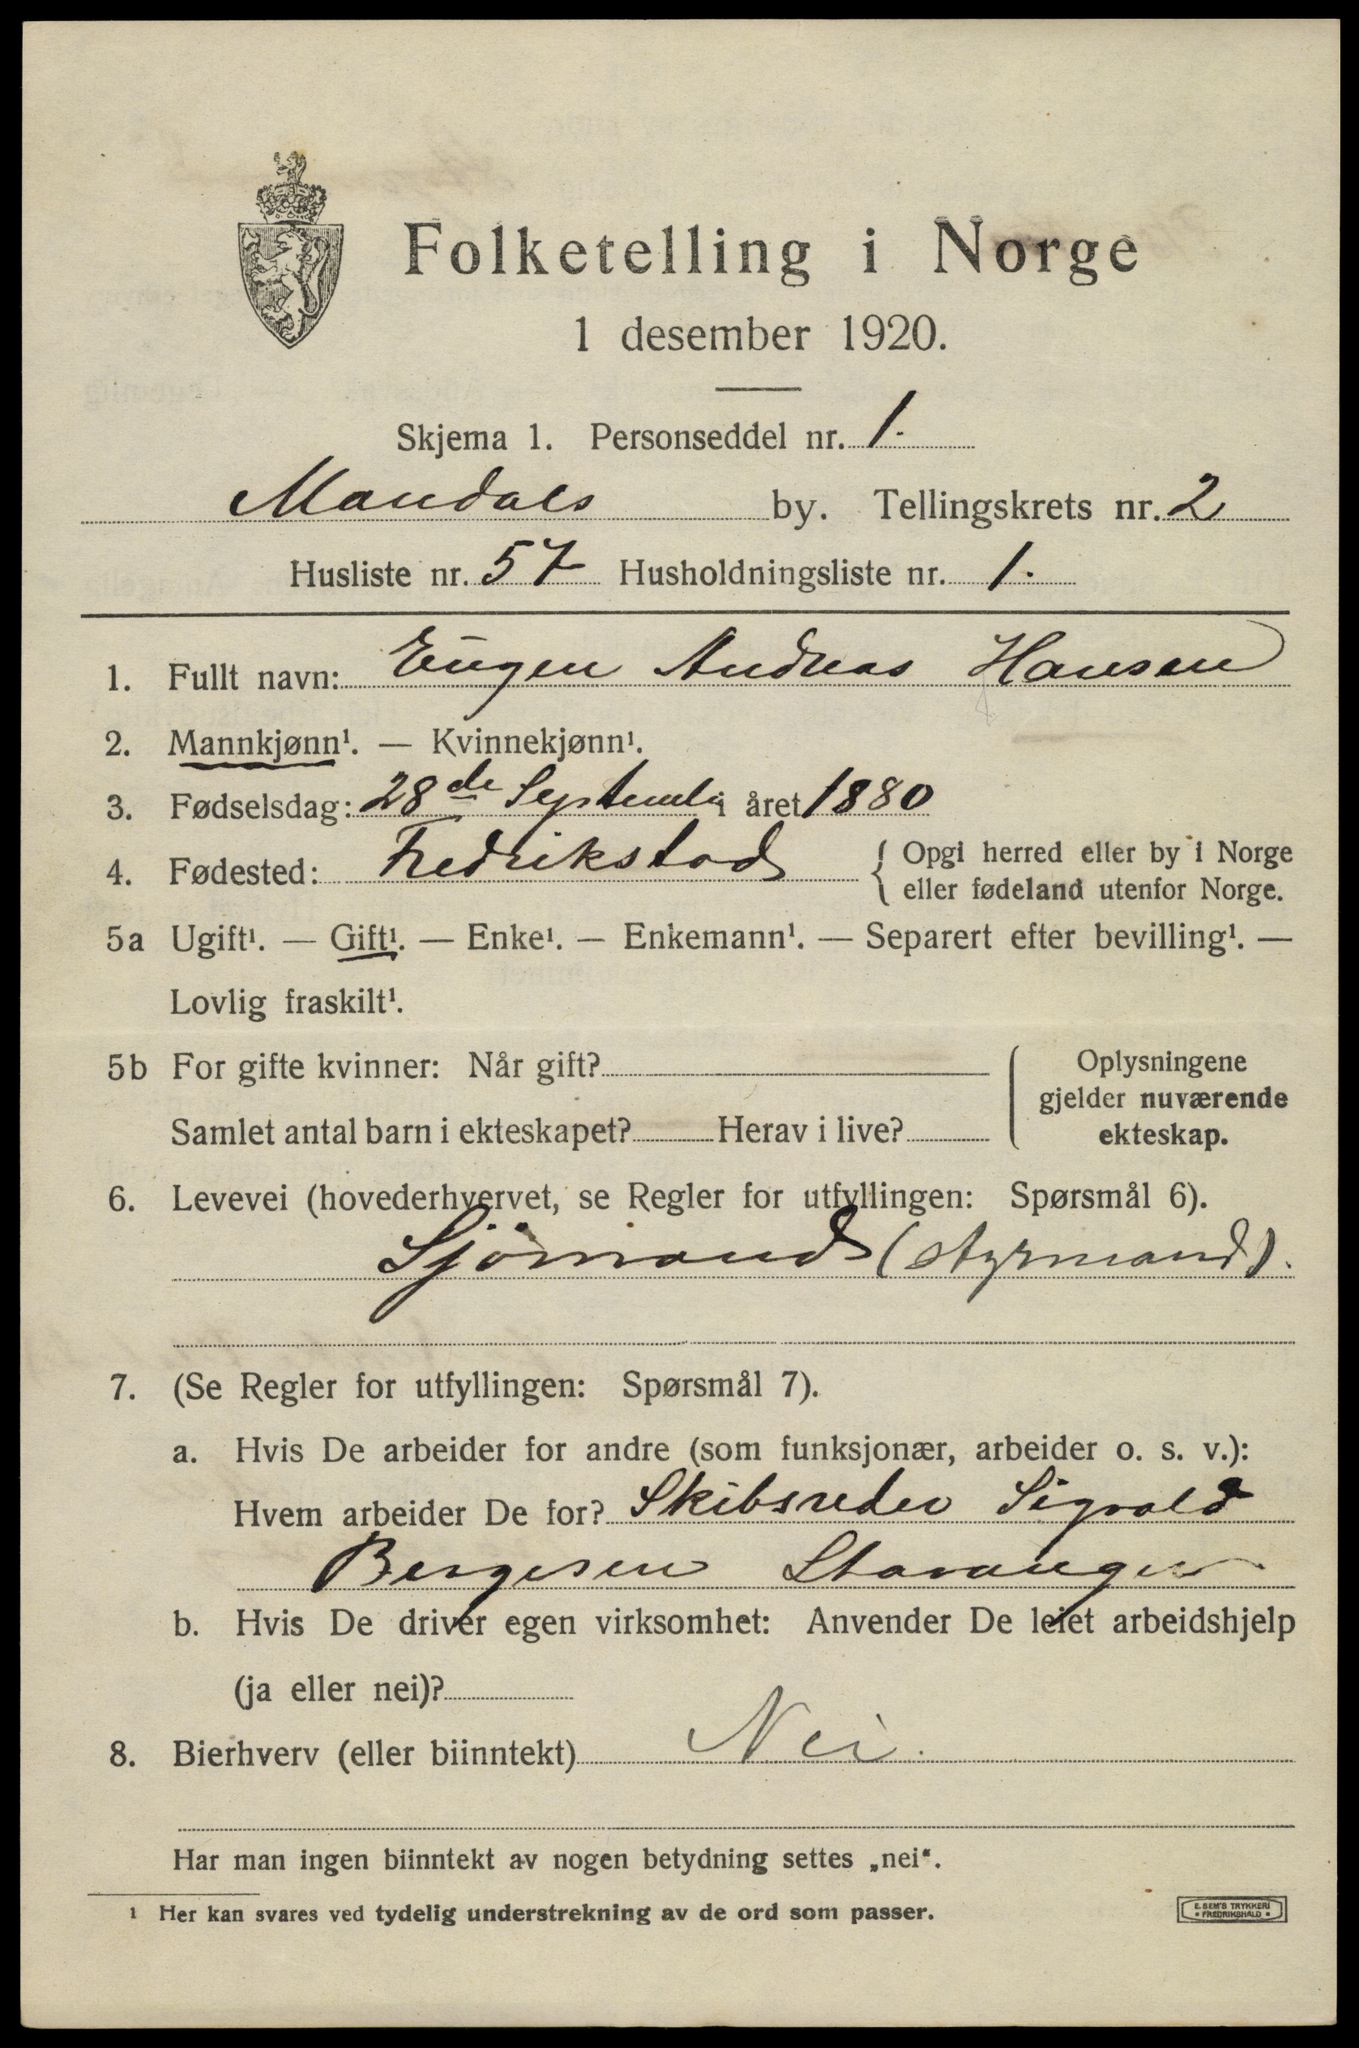 Folketelling i Norge
1 desember 1920.
Skjema 1. Personseddel nr. 1.
Mandals by. Tellingskrets nr. 2
Husliste nr. 57 Husholdningsliste nr. 1.
1. Fullt navn: Eugen Andreas Hansen
2. Mannkjønn¹. — Kvinnekjønn¹.
3. Fødselsdag: 28de Septembe i året 1880
4. Fødested: Fredrikstad { Opgi herred eller by i Norge
eller fødeland utenfor Norge.
5a Ugift¹. — Gift¹. — Enke¹. — Enkemann¹. — Separert efter bevilling¹. —
Lovlig fraskilt¹.
5b For gifte kvinner: Når gift? ( Oplysningene
gjelder nuværende
Samlet antal barn i ekteskapet? Herav i live? ekteskap.
6. Levevei (hovederhvervet, se Regler for utfyllingen: Spørsmål 6).
Sjömand (styrmand).
7. (Se Regler for utfyllingen: Spørsmål 7).
a. Hvis De arbeider for andre (som funksjonær, arbeider o. s. v.):
Hvem arbeider De for? Skibsreder Sigvald
Bergesen Stavanger
b. Hvis De driver egen virksomhet: Anvender De leiet arbeidshjelp
(ja eller nei)?
8. Bierhverv (eller biinntekt) Nei.
Har man ingen biinntekt av nogen betydning settes „nei“.
¹ Her kan svares ved tydelig understrekning av de ord som passer.
E. SEM'S TRYKKERI
• FREDRIKSHALD •